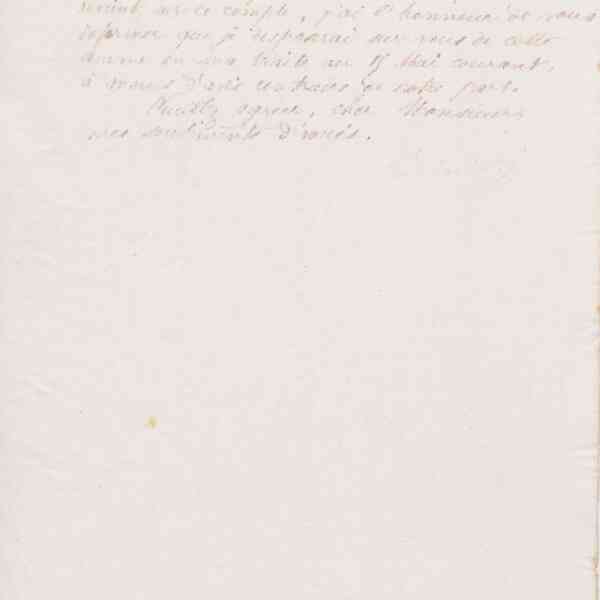 sur ce compte, j'ai l'honneur de vous
informer que je disposerai sur vous de cette
somme en ma traite au 15 Mai courant,
à moins d'avis contraire de votre part.
Veuillez agréer, cher Monsieur,
mes sentiments dévoués.